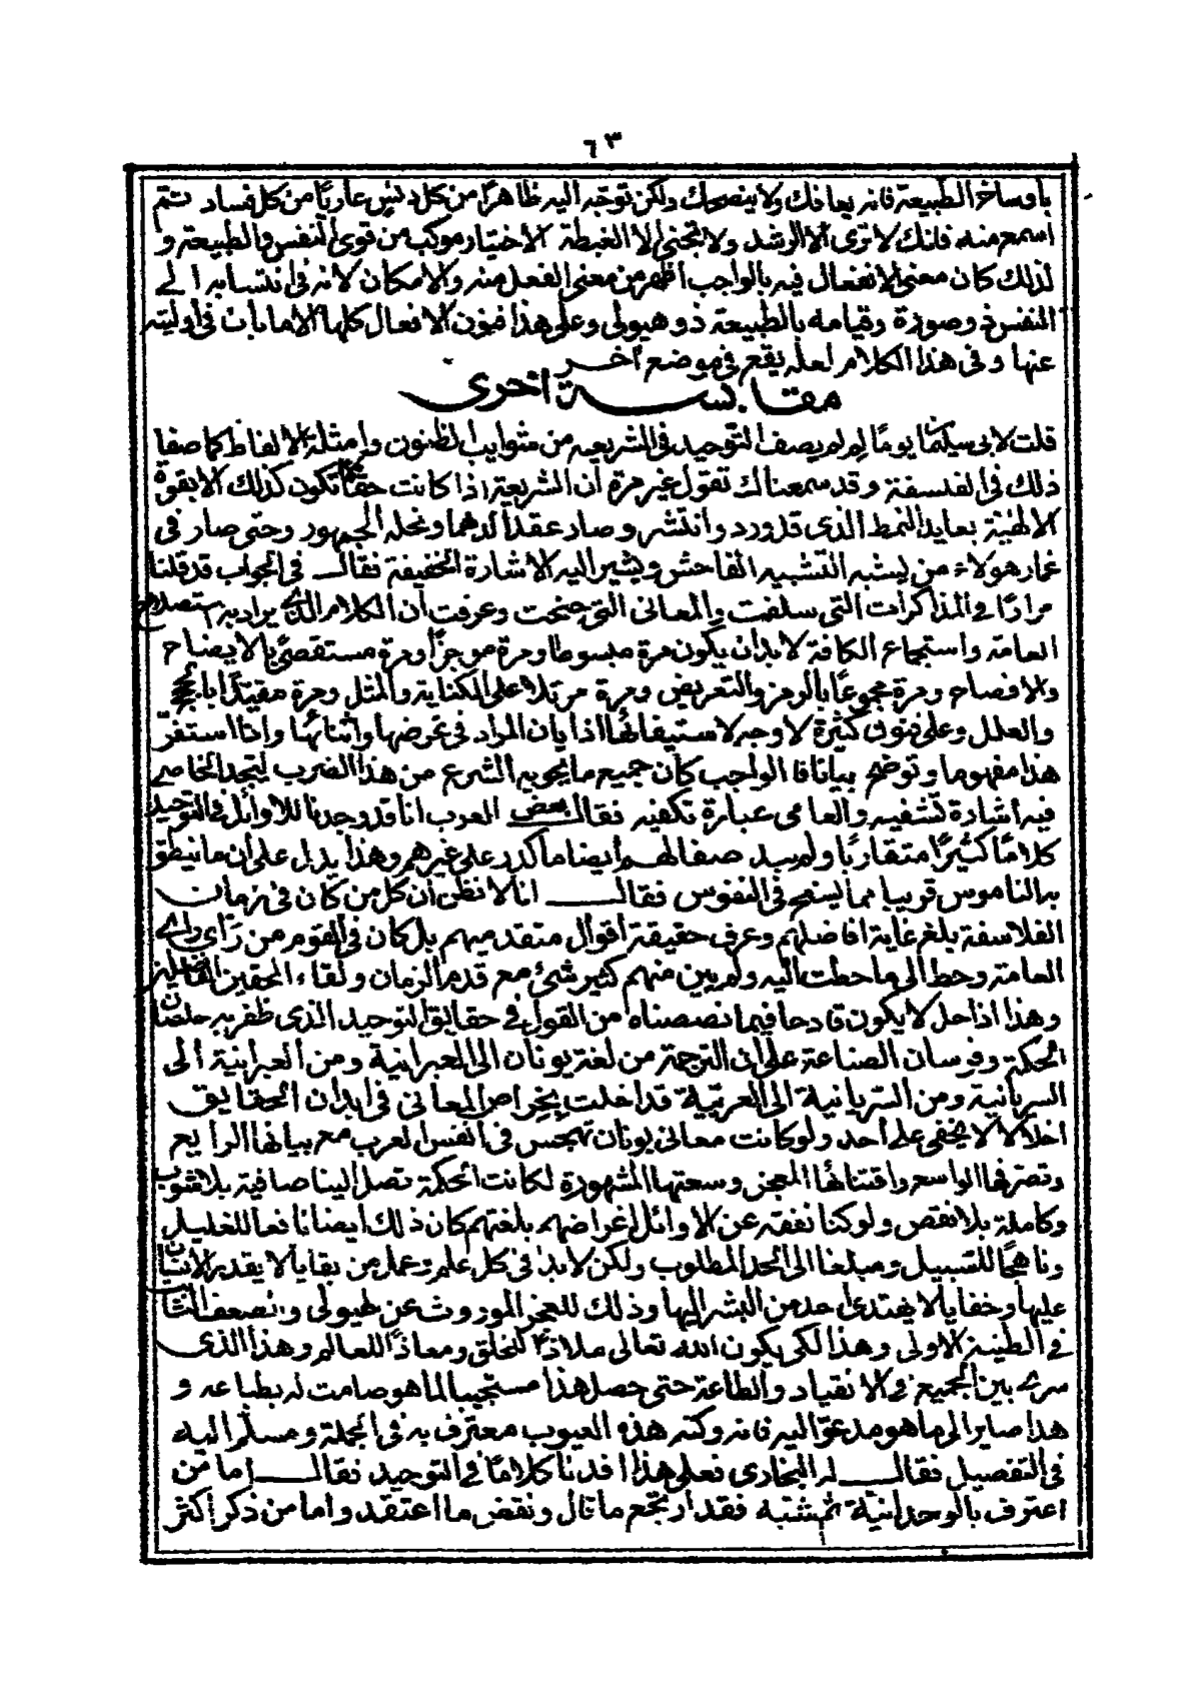 ٦٣
بأوساخ الطبيعة فانه يعافك ولا ينصحك ولكن توجّه اليه ظاهرًا من كل دنس عاريًا من كل فساد ثم
اسمع منه فانك لا ترى الا الرشد ولا تجنى الا الغبطة الاختيار مركب من قوى النفس والطبيعة و
لذلك كان معنى الانفعال فيه بالواجب أظهر من معنى الفعل منه والامكان لانه فى انتسابه الى
النفس ذو صورة وقيامه بالطبيعة ذو هيولى وعلى هذا فنون الافعال كلها الا ما بان فى أوليته
عنها وفى هذا الكلام لعله يقع فى موضع آخر
مقابسة اخرى
قلت لابى سليمان يومًا لم لم يصف التوحيد فى الشريعه من شوايب الظنون وامثلة الالفاظ كما صفا
ذلك فى الفلسفة وقد سمعناك تقول غير مرة أن الشريعة اذا كانت حقا كذلك الا بقوة
الالهية بعايد النمط الذى قد ورد وانتشر وصار عقدا لدهما ونحله الجمهور وحتى صار فى
غمار هولاء من يشبه التشبيه الفاحش ويشير اليه الاشارة الخفيفة فقال فى الجواب قد قلنا
مرارًا فى المذاكرات التى سلفت والمعانى التى جنحت وعرفت أن الكلام الذى يراد به استصلاح
العامة واستجماع الكافة لا بد ان يكون مرة مبسوطا ومرة موجزًا ومرة مستقصى بالايضاح
والافصاح ومرة مجموعًا بالرمز والتعريض ومرة مرتلا على الكناية والمثل ومرة مقيدًا بالحجج
والعلل وعلى فنون كثيرة لا وجه لاستيفائها اذا بان المراد فى عرضها واثنائها واذا استقرّ
هذا مفهوما وتوضح بيانا فالواجب كان جميع ما يحويه الشرع من هذا الضرب ليتجد الخاصى
فيه أشارة تشفيه والعامى عبارة تكفيه فقال بعض العرب انا قد وجدنا للاوائل فى التوحيد
كلامًا كثيرًا متقاربًا ولم صفا لهم ايضا ما كدر على غيرهم وهذا يدل على أن ما نطق
به الناموس قريبا مما ينفتح فى النفوس فقال انا لا نظن أن كل من كان فى زمان
الفلاسفة بلغ غاية افاضلهم وعرف حقيقة أقوال متقدميهم بل كان فى القوم من رأى راى
العامة وحط الى ما حطت اليه ولم يبن منهم كثير شئ مع قدم الزمان ولقاء المحقين الفاضلين
وهذا اذا حل لا يكون قادحا فيما نصصناه من القول فى حقايق التوحيد الذى ظفر به خلصان
الحكمة وفرسان الصناعة على ان الترجمة من لغة يونان الى العبرانية ومن العبرانية الى
السريانية ومن السريانية الى العربيّة قد اخلت بخواص المعانى فى ابدان الحقايق
اخلالا لا يخفى على أحد ولو كانت معانى يونان تهجس فى انفس العرب مع بيانها الرايع
وتصرّفها الواسع وافتنانها المعجز وسعتها المشهورة لكانت الحكمة تصل الينا صافية بلا شوب
وكاملة بلا نقص ولو كنا نفقه عن الاوائل اغراضهم بلغتهم كان ذلك ايضا نافعا للغليل
وناهجًا للسبيل ومبلغا الى الحد المطلوب ولكن لا بد فى كل علم وعمل من بقايا لا يقدر الانسان
عليها وخفايا لا يهتدى احد من البشر اليها وذلك للعجز الموروث عن الهيولى والضعف الثابت
فى الطينة الاولى وهذا لكى يكون الله تعالى ملاذًا للخلق ومعاذًا للعالم وهذا الذى
بين الجميع فى الانقياد والطاعة حتى حصل هذا مستجيبا لما هو صامت له بطباعه و
هذا صاير الى ما هو مدعوّ اليه فانه وكنه هذه العيوب معترف به فى الجملة ومسلّم اليه
فى التفصيل فقال له البخارى فعلى هذا افدنا كلامًا فى التوحيد فقال إما من
اعترف بالوحدانية ثم شبّه فقد ارتجع ما قال ونقض ما اعتقد واما من ذكر اكثر